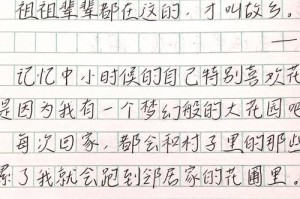 祖祖辈辈都在这的，才叫故乡。
——
记忆中小时候的自己特别喜欢花
是因为我有一个梦幻般的大花园吧
每次回家，都会和村子里的那些
累了我就会跑到邻居家的花圃里。